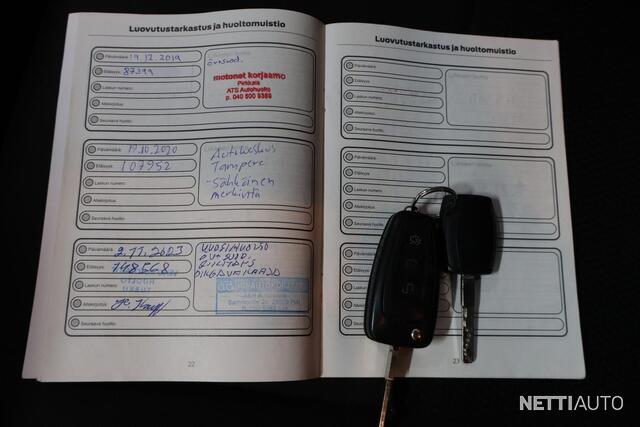 Luovutustarkastus ja huoltomuistio
Päivämäärä: 19.12.2019
Etäisyys: 87399
Laskun numero:
Allekirjoitus:
Seuraava huolto:
motonet korjaamo
Pirkkala
ATS Autohuolto
p. 040 500 9389
Päivämäärä: 19.10.2020
Etäisyys: 107952
Laskun numero:
Allekirjoitus:
Seuraava huolto:
Autokeskus
Tampere
-Sähköinen
merkintä
Päivämäärä: 2.11.2023
Etäisyys: 148568
Laskun numero:
Allekirjoitus:
Seuraava huolto:
VUOSIHUOLTO
22
Luovutustarkastus ja huoltomuistio
Päivämäärä:
Etäisyys:
Laskun numero:
Allekirjoitus:
Seuraava huolto:
Päivämäärä:
Etäisyys:
Laskun numero:
Allekirjoitus:
Seuraava huolto:
Päivämäärä:
Etäisyys:
Laskun numero:
Allekirjoitus:
Seuraava huolto:
23
NETTIAUTO